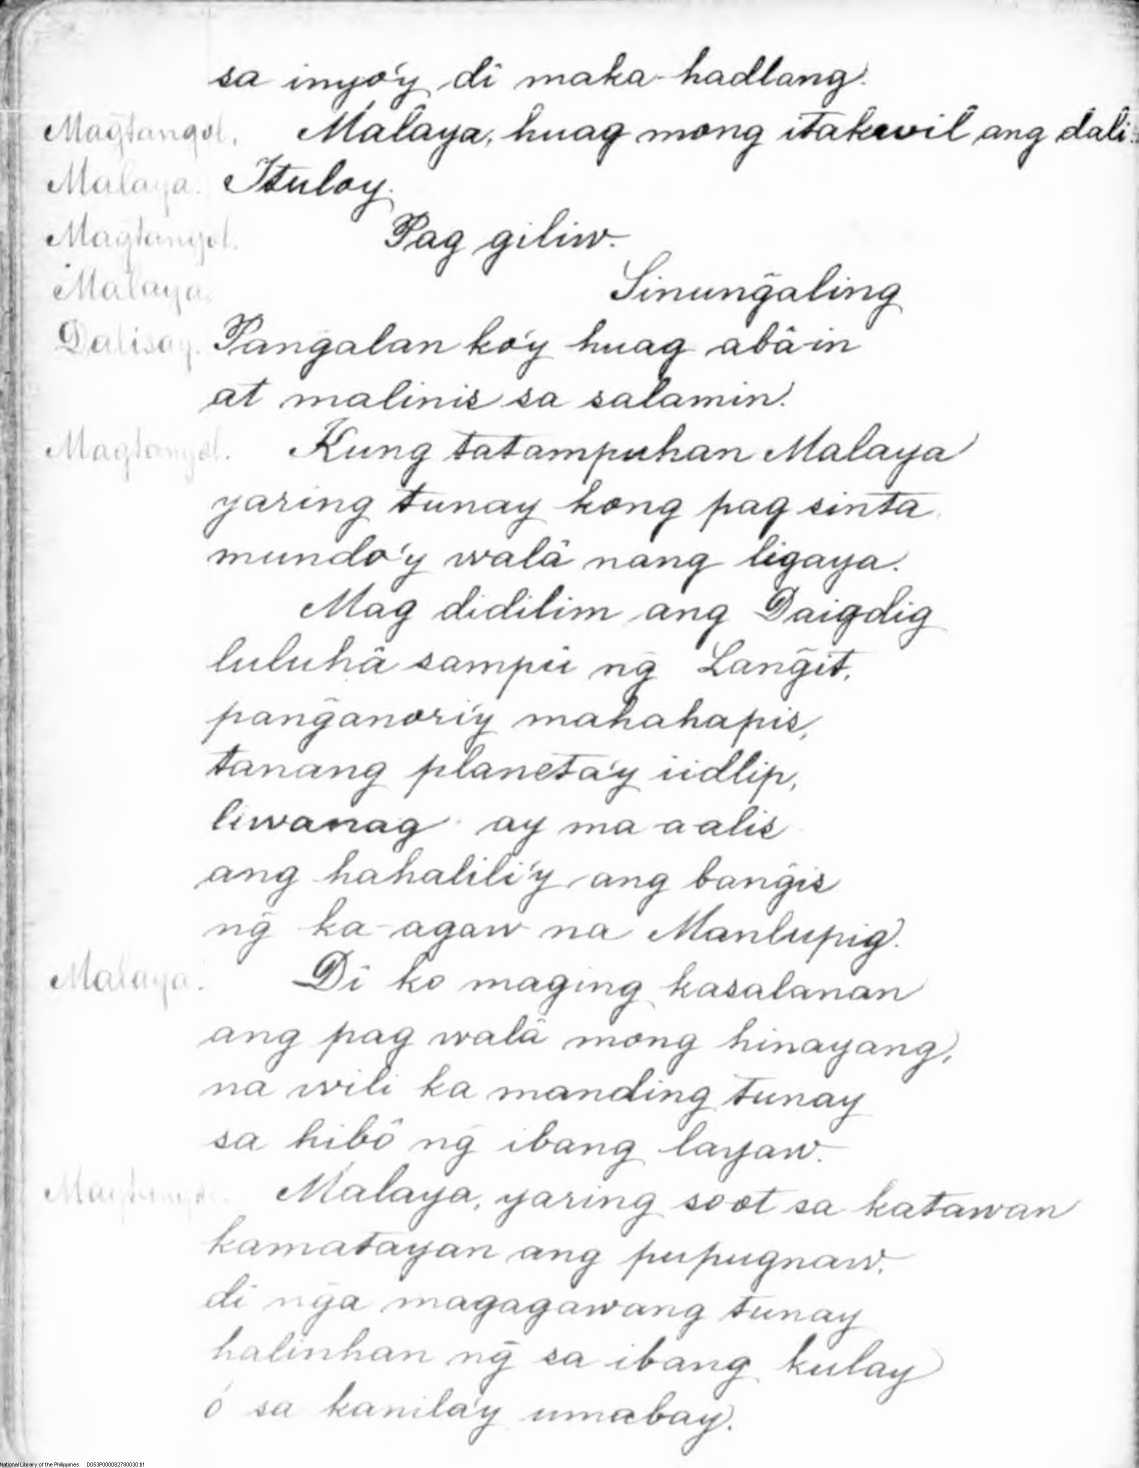 sa inyo'y dî maka-hadlang.
Magtangol. Malaya, huag mong itakwil ang dali.
Malaya. Ituloy.
Magtangol. Pag giliw.
Malaya. Sinung̃aling
Dalisay. Pang̃alan ko'y huag abâ-in
at malinis sa salamin.
Magtangol. Kung tatampuhan Malaya
yaring tunay kong pag sinta
mundo'y walâ nang ligaya.
Mag didilim ang Daigdig
luluhâ sampû ng̃ Lang̃it,
pang̃anori'y mahahapis,
tanang planeta'y iidlip,
liwanag ay ma-a-alis
ang hahalili'y ang bang̃is
ng̃ ka-agaw na Manlupig.
Malaya. Dî ko maging kasalanan
ang pag walâ mong hinayang,
na wili ka manding tunay
sa hibô ng̃ ibang layaw.
Magtangol. Malaya, yaring soot sa katawan
kamatayan ang pupugnaw.
di ng̃a magagawang tunay
halinhan ng̃ sa ibang kulay
ó sa kanila'y umabay.
National Library of the Philippines